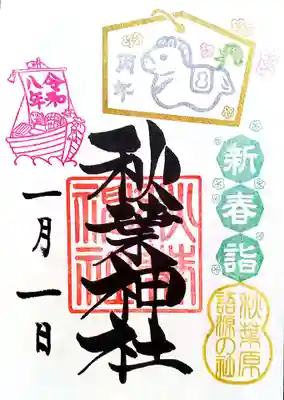 新春詣
秋葉原
語源の社
秋葉神社
秋葉
神社
令和
八年
一月一日